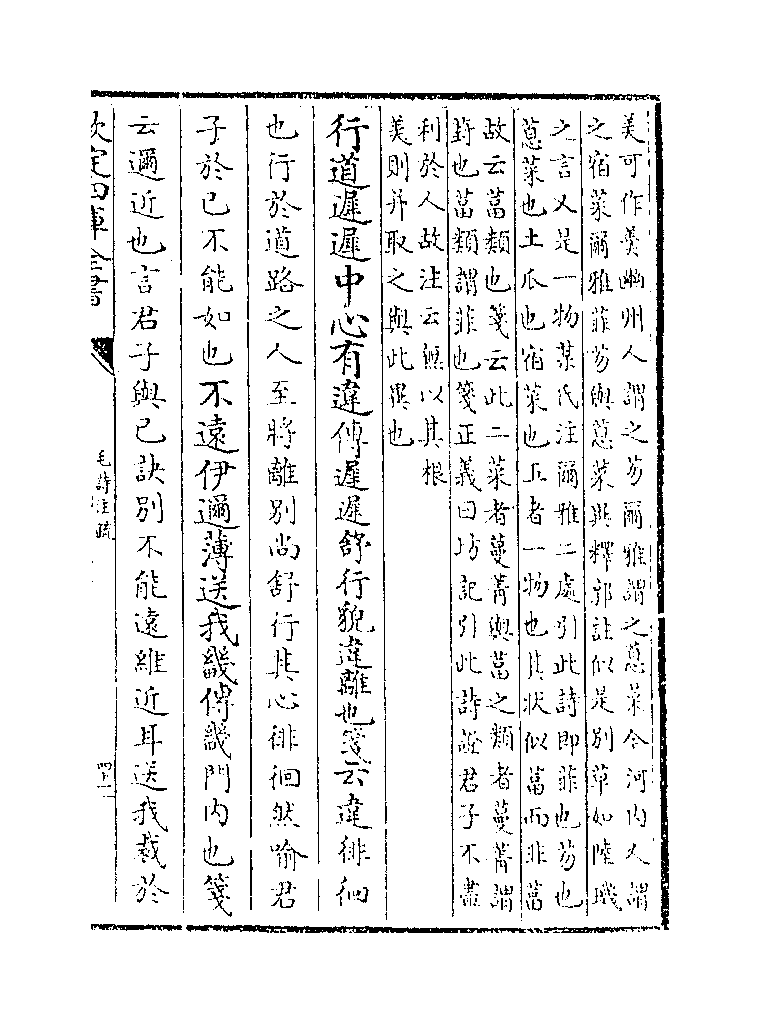 美可作羹幽州人謂之芴爾雅謂之蒠菜今河内人謂
之宿菜爾雅菲芴與蒠菜異釋郭註似是别草如陸璣
之言又是一物某氏注爾雅二處引此詩即菲也芴也
蒠菜也土瓜也宿菜也五者一物也其状似葍而非葍
故云葍類也箋云此二菜者蔓菁與葍之類者蔓菁謂
葑也葍類謂菲也箋正義曰坊記引此詩證君子不盡
利於人故注云無以其根
美則并取之與此異也
行道遲遲中心有違傳遲遲舒行貌違離也箋云違徘徊
也行於道路之人至將離别尚舒行其心徘徊然喻君
子於已不能如也不遠伊邇薄送我畿傳畿門内也箋
云邇近也言君子與已訣别不能遠維近耳送我裁於
欽定四庫全書
毛詩注疏
四十一